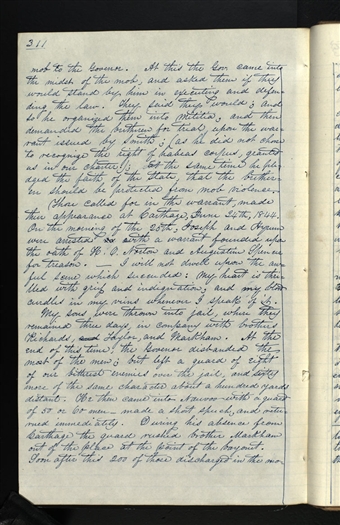 311
mob to the Govenor. At this the Gov. came into
the midst of the mob, and asked them if they
would stand by him in executing and defen-
ding the law. They said they would; and
so he organized them into militia, and then
demanded the brethren for trial, upon the war-
rant issued by Smith; (as he did not chose
to recognize the right of habeas corpus, granted
us in our charter;) at the same time he ple-
dged the faith of the State, that the brethr-
en should be protected from mob violence.
Those called for in the warrant, made
their appearance at Carthage, June 24th, 1844.
On the morning of the 25th, Joseph and Hyrum
were arrested with a warrant founded upon
the oath of H. O. Norton and Augustine Spencer
for treason. — I will not dwell upon the aw-
ful scene which succeeded: My heart is thri-
lled with grief and indignation, and my blood
curdles in my veins whenever I speak of it.
My sons were thrown into jail, where they
remained three days, in company with brothers
Richards, Taylor, and Markham. At the
end of this time, the Govenor disbanded the
most of the men, but left a guard of eight
of our bitterest enemies over the jail, and sixty
more of the same character about a hundred yards
distant. He then came into Nauvoo with a guard
of 50 or 60 men made a short speech, and retur-
ned immediately. During his absence from
Carthage the guard rushed brother Markham
out of the place at the point of the bayonet.
Soon after this 200 of those discharged in the mo-